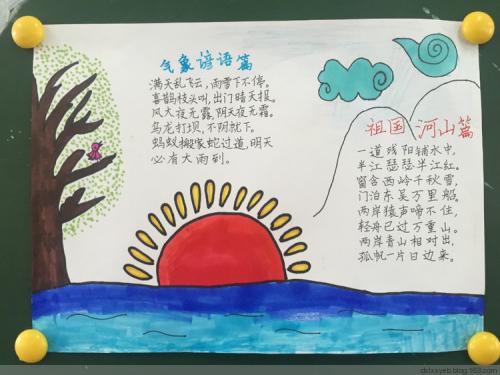 气象谚语篇
满天乱飞云,雨雪下不停。
喜鹊枝头叫,出门晴天报。
风大夜无露,阴天夜无霜。
乌龙打坝,不阴就下。
蚂蚁搬家蛇过道,明天
必有大雨到。
祖国河山篇
一道残阳铺水中,
半江瑟瑟半江红。
窗含西岭千秋雪,
门泊东吴万里船。
两岸猿声啼不住,
轻舟已过万重山。
两岸青山相对出,
孤帆一片日边来。
dxlxxyeb.blog.163.com